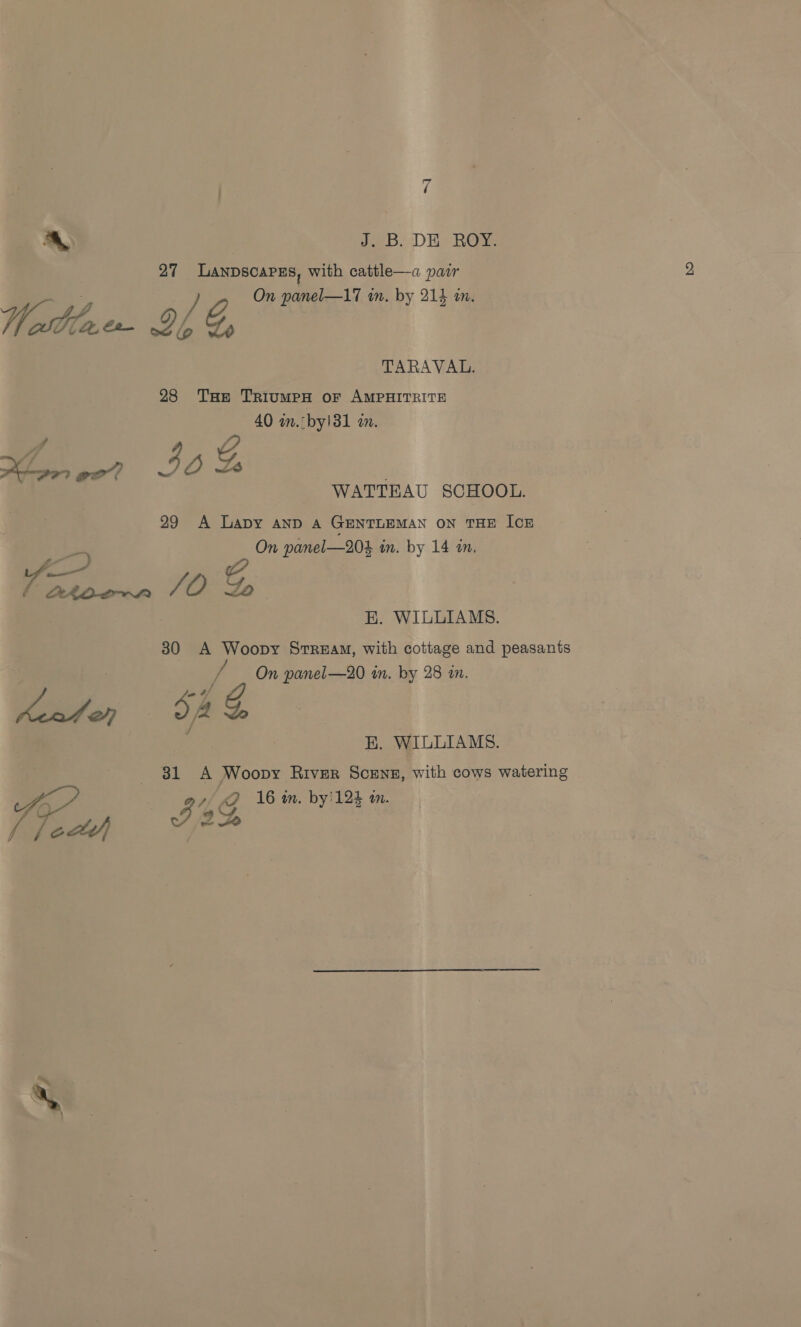 7
J. B. DE ROY.
27 LANDSCAPES, with cattle—a pair 2
On panel—17 in. by 21½ in.
Wallace
TARAVAL.
28 THE TRIUMPH OF AMPHITRITE
40 in. by 31 in.
WATTEAU SCHOOL.
29 A LADY AND A GENTLEMAN ON THE ICE
On panel—20½ in. by 14 in.
10 G
E. WILLIAMS.
30 A WOODY STREAM, with cottage and peasants
On panel—20 in. by 28 in.
E. WILLIAMS.
31 A WOODY RIVER SCENE, with cows watering
16 in. by 12½ in.